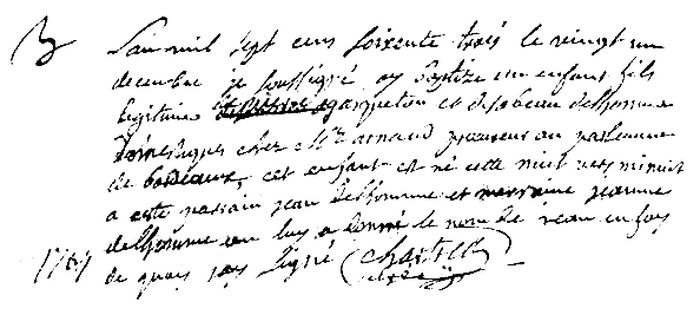 B
L'an mil sept cens soixente trois le vingt un
decembre je soussigné ay baptize un enfant fils
legitime garqueton et d'isabeau delhomme
Domestiques chez Mr arnaud procureur au parlemen
de bordeaux, cet enfant est né cette nuit vers minuit
a esté parrain jean delhomme et marraine jeanne
delhomme on luy a donné le nom de jean en foy
1763 de quoy jay signé